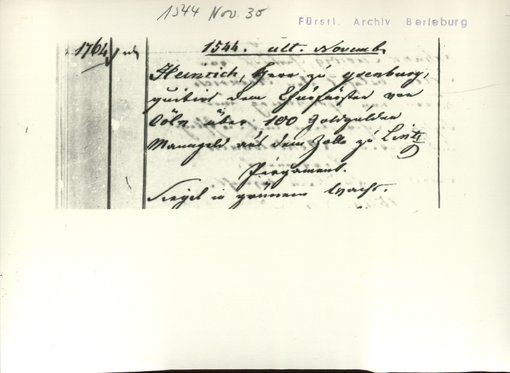 1544 Nov. 30
Fürstl. Archiv Berleburg
1764
1544. ult. Novemb.
Heinrich, Herr zu Ysenburg,
quitirt dem Churfürsten von
Cöln über 100 Goldgulden
Manngeld aus dem Zolle zu Lintz
Pergament.
Siegel in grünem Wachs.